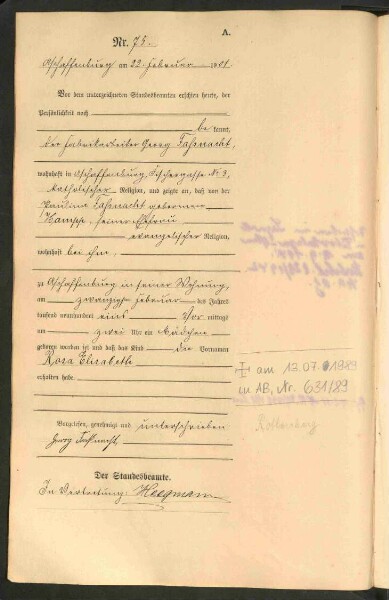 A.
Nr. 75.
Aschaffenburg am 22. Februar 1901.
Vor dem unterzeichneten Standesbeamten erschien heute, der
Persönlichkeit nach
be kannt,
der Fabrikarbeiter Georg Faßnacht,
wohnhaft in Aschaffenburg, Fischergasse No 3,
katholischer Religion, und zeigte an, daß von der
Pauline Faßnacht geborenen
seiner Ehefrau
evangelischer Religion,
wohnhaft bei ihm,
zu Aschaffenburg in seiner Wohnung,
am zwanzigsten Februar des Jahres
tausend neunhundert eins Vor mittags
um zwei Uhr ein Mädchen
geboren worden ist und daß das Kind die Vornamen
Rosa Elisabeth
erhalten habe.
Vorgelesen, genehmigt und unterschrieben
Georg Faßnacht.
Der Standesbeamte.
In Vertretung: Heegmann
am 13.07.1989
in AB, Nr. 631/89